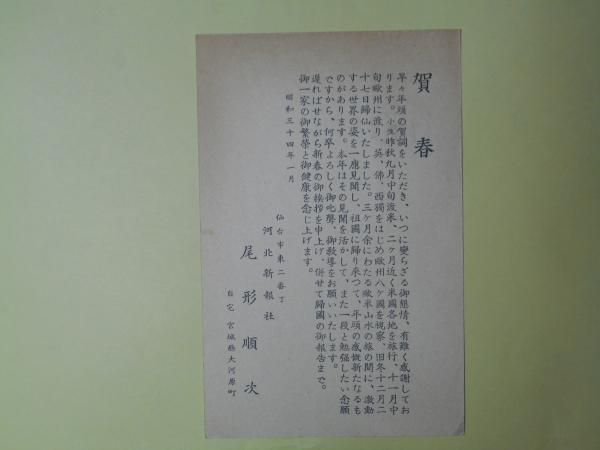 賀春
早々年頭の賀詞をいただき、いつに變らざる御懇情、有難く感謝してお
ります。小生昨秋九月中旬渡米、二ヶ月近く米國各地を旅行、十一月中
旬歐州に渡り、英、佛、西獨をはじめ歐州八ヶ國を視察、旧冬十二月二
十七日歸仙いたしました。三ヶ月余にわたる歐米山水の旅の間に、激動
する世界の姿を一應見聞し、祖國に歸り來つて、年頭の感慨新たなるも
のがあります。本年はその見聞を活かして、また一段と勉强したい念願
ですから、何卒よろしく御叱聲、御敎導をお願いいたします。
遅ればせながら新春の御挨拶を申上げ、併せて歸國の御報告まで。
御一家の御繁榮と御健康を念じ上げます。
昭和三十四年一月
仙台市東二番丁
河北新報社
尾形順次
自宅 宮城縣大河原町